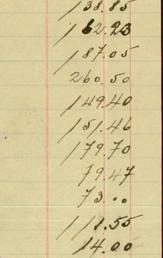 138.85
162.23
187.05
260.50
149.40
151.46
179.70
79.47
73...
111.55
14.00